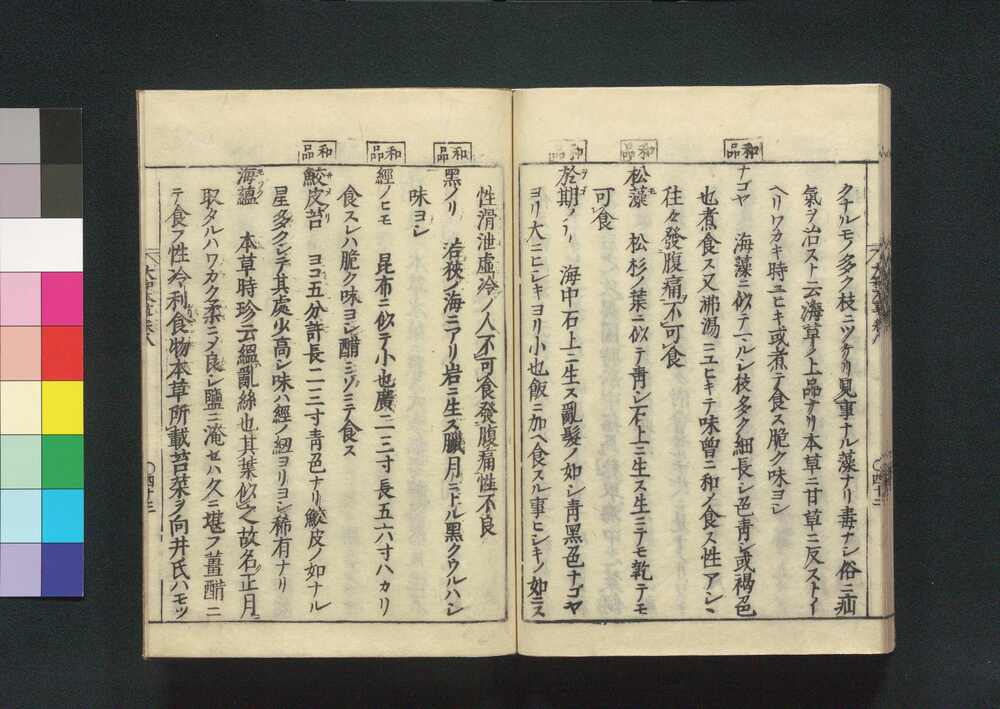 クナルモノ多ク枝ニツケリ見事ナル藻ナリ毒ナシ俗ニ疝
氣ヲ治スト云海草ノ上品ナリ本草ニ甘草ニ反ストイ
ヘリワカキ時ユヒキ或煮テ食ス脆ク味ヨシ
和品
ナゴヤ 海藻ニ似テマルシ枝多ク細長シ色青シ或褐色
也煮食ス又沸湯ニユヒキテ味曾ニ和ノ食ス性アシヽ
往々發腹痛不可食
和品
松藻 松杉ノ葉ニ似テ青シ石上ニ生ス生ニテモ乾テモ
可食
和品
於期ノリ 海中石上ニ生ス亂髪ノ如シ青黑色ナゴヤ
ヨリ大ニヒシキヨリ小也飯ニ加ヘ食スル事ヒシキノ如ニス
性滑泄虚冷ノ人不可食發腹痛性不良
和品
黑ノリ 若狹ノ海ニアリ岩ニ生ス臘月ニトル黑クウルハシ
味ヨシ
和品
經ノヒモ 昆布ニ似テ小也廣二三寸長五六寸ハカリ
食スレハ脆ク味ヨシ醋ミソニテ食ス
和品
鮫皮苔 ヨコ五分許長二三寸青色ナリ鮫皮ノ如ナル
星多クシテ其處少高シ味ハ經ノ紐ヨリヨシ稀有ナリ
海蘊 本草時珍云縕亂絲也其葉似之故名正月
取タルハワカク柔ニメ良シ鹽ニ淹セハ久ニ堪フ薑醋ニ
テ食フ性冷利食物本草所載苔菜ヲ向井氏ハモツ